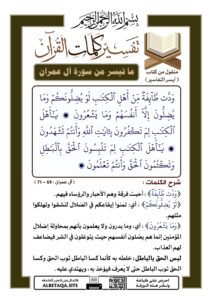 بسم الله الرحمن الرحيم
تفسير كلمات القرآن
منقول من كتاب
( أيسر التفاسير )
ما تيسر من سورة آل عمران
وَدَّت طَّآئِفَةٌ مِّنْ أَهْلِ ٱلْكِتَٰبِ لَوْ يُضِلُّونَكُمْ وَمَا
يُضِلُّونَ إِلَّآ أَنفُسَهُمْ وَمَا يَشْعُرُونَ ۞ يَٰٓأَهْلَ
ٱلْكِتَٰبِ لِمَ تَكْفُرُونَ بِـَٔايَٰتِ ٱللَّهِ وَأَنتُمْ تَشْهَدُونَ
۞ يَٰٓأَهْلَ ٱلْكِتَٰبِ لِمَ تَلْبِسُونَ ٱلْحَقَّ بِٱلْبَٰطِلِ
وَتَكْتُمُونَ ٱلْحَقَّ وَأَنتُمْ تَعْلَمُونَ ۞
شرح الكلمات :
( آل عمران : 69 - 71 )
﴿وَدَّت طَّآئِفَةٌ﴾ : أحبت فرقة وهم الأحبار والرؤساء فيهم.
﴿لَوْ يُضِلُّونَكُمْ﴾ : أي: تمنوا إيقاعكم في الضلال لتشقوا وتهلكوا
مثلهم.
﴿وَمَا يَشْعُرُونَ﴾ : أي: وما يدرون ولا يعلمون بأنهم بمحاولة إضلال
المؤمنين إنما هم يضلون أنفسهم حيث يتوغلون في الشر فيضاعف
لهم العذاب.
لبس الحق بالباطل: خلطه به كأنما كسا الباطل ثوب الحق وكسا
الحق ثوب الباطل حتى لا يعرف فيؤخذ به، ويهتدي عليه.
ALBETAQA.SITE